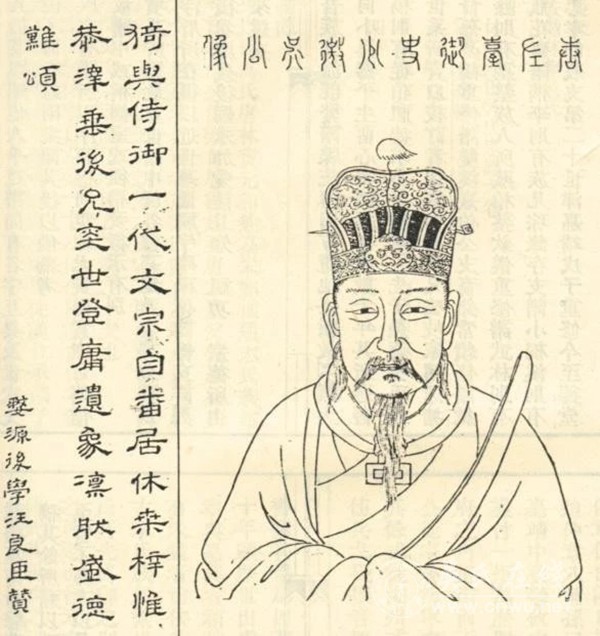 唐左臺御史少微吳公像
猗與侍御一代文宗自番居休桑梓惟
恭澤垂後昆奕世登庸遺象凜肰盛德
難頌
婺源後學汪良臣贊